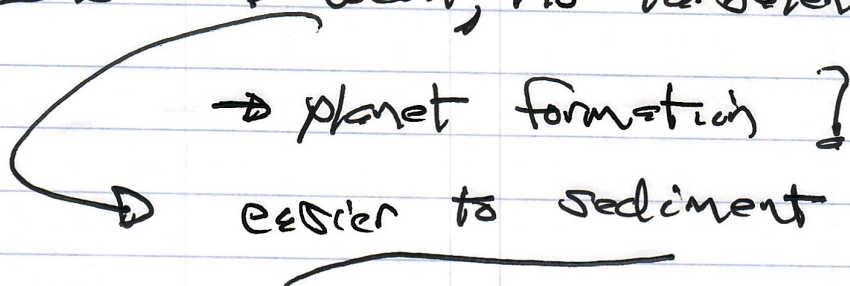 → planet formation ?
easier to sediment